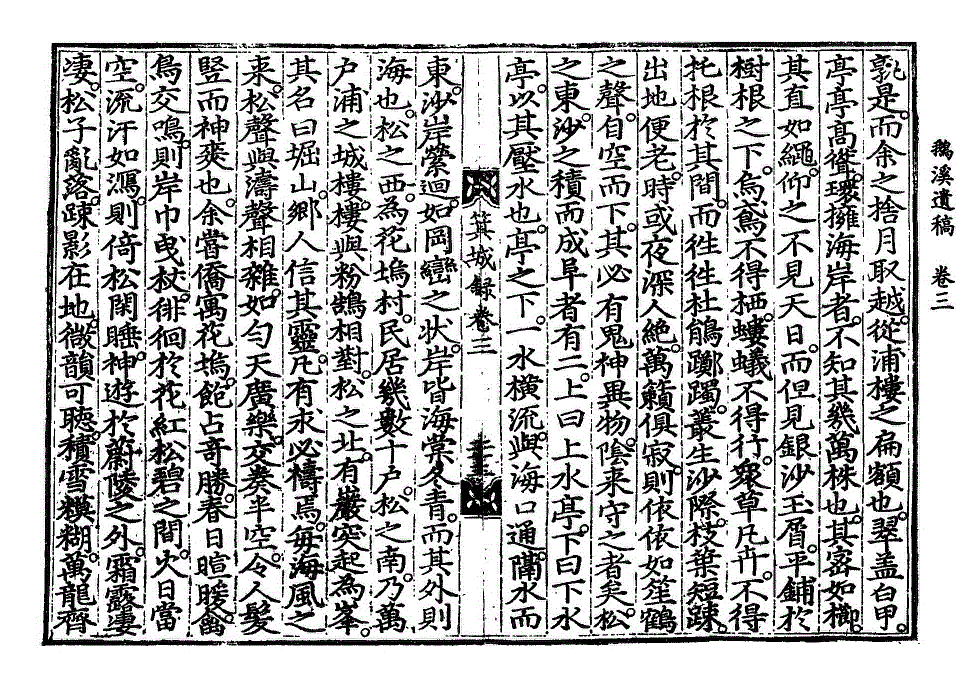 鵝溪遺稿 卷三
孰是而余之捨月取越從浦樓之扁額也翠盖白甲
亭亭高聳環擁海岸者不知其幾萬株也其密如櫛
其直如繩仰之不見天日而但見銀沙玉屑平鋪於
樹根之下烏鳶不得栖螻蟻不得行衆草凡卉不得
托根於其間而往往杜鵑躑躅叢生沙際枝葉短踈
出地便老時或夜深人絶萬籟俱寂則依依如笙鶴
之聲自空而下其必有鬼神異物陰来守之者矣松
之東沙之積而成阜者有二上曰上水亭下曰下水
亭以其壓水也亭之下一水橫流與海口通隔水而
箕城錄卷三
東沙岸縈迴如岡巒之狀岸皆海棠冬青而其外則
海也松之西為花塢村民居幾數十户松之南乃萬
户浦之城樓樓與粉鵠相對松之北有巖突起為峯
其名曰堀山鄉人信其靈凡有求必禱焉每海風之
来松聲與濤聲相雜如勻天廣樂交奏半空令人髮
竪而神爽也余嘗僑寓花塢飽占奇勝春日暄暖禽
鳥交鳴則岸巾曳杖徘徊於花紅松碧之間火日當
空流汗如瀉則倚松閑睡神遊於蔚陵之外霜露凄
凄松子亂落踈影在地微韻可聽積雪糢糊萬龍齊